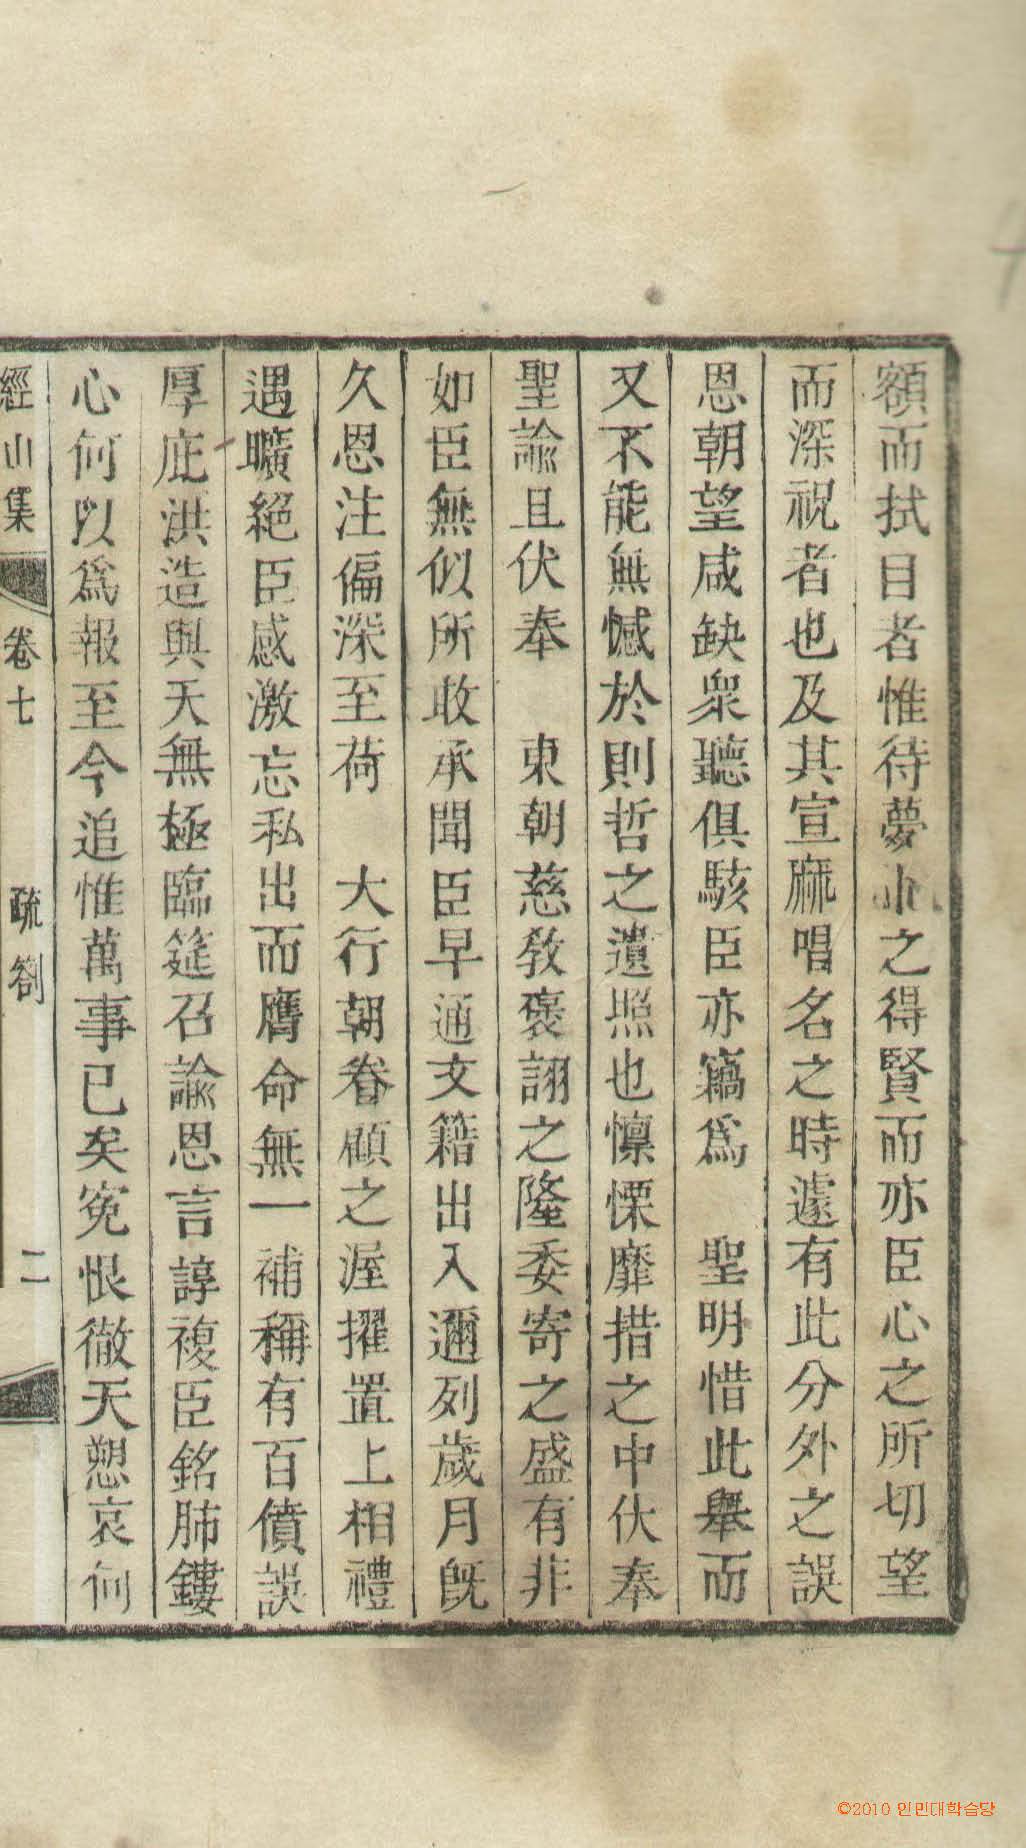 額而拭目者惟待夢卜之得賢而亦臣心之所切望
而深祝者也及其宣麻唱名之時遽有此分外之誤
恩朝望咸缺衆聽俱駭臣亦竊爲　聖明惜此擧而
又不能無憾於則哲之遺照也懍慄靡措之中伏奉
聖諭且伏奉　東朝慈敎褒詡之隆委寄之盛有非
如臣無似所敢承聞臣早通文籍出入邇列歲月旣
久恩注偏深至荷　大行朝眷顧之渥擢置上相禮
遇曠絕臣感激忘私出而膺命無一補稱有百僨誤
厚庇洪造與天無極臨筵召諭恩言諄複臣銘肺鏤
心何以爲報至今追惟萬事已矣寃恨徹天愬哀何
經山集　卷七　疏箚　二
©2010 인민대학습당